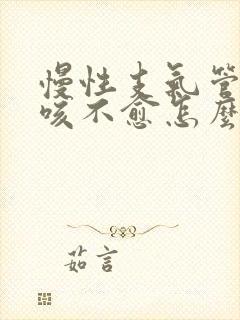 慢性支氣管
咳不愈怎麼
茹言